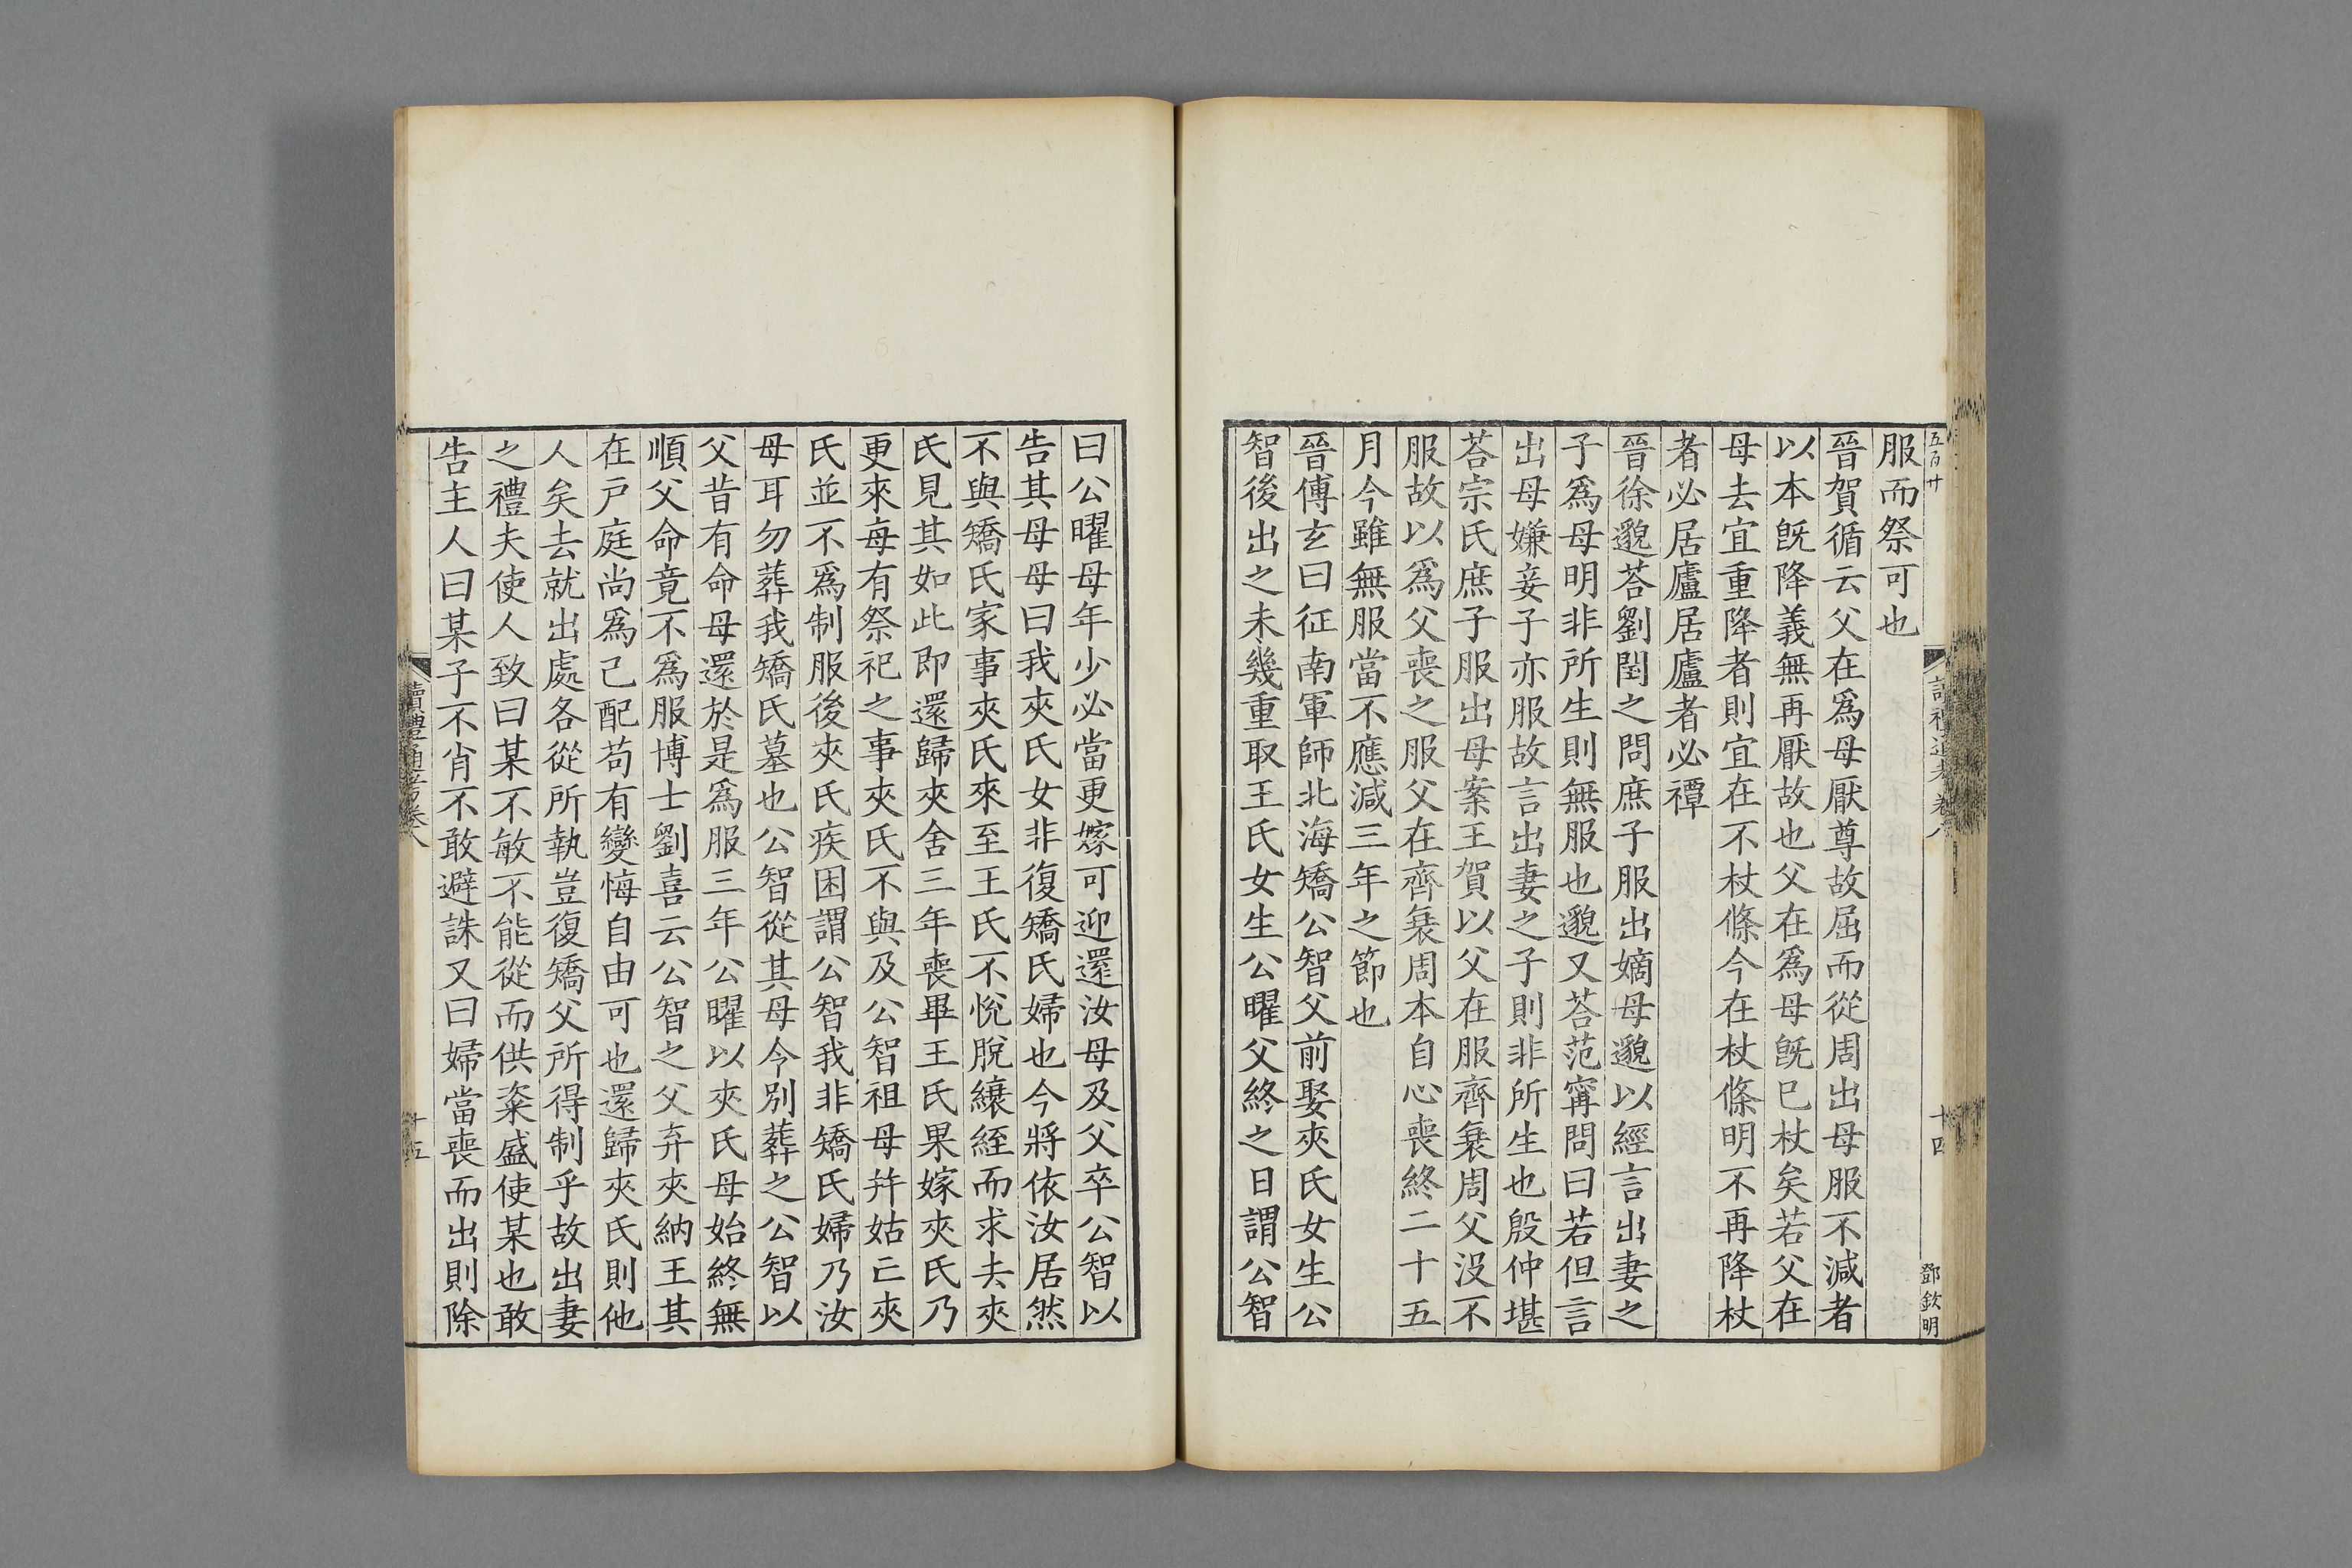 五百廿
服而祭可也
晉賀循云父在爲母厭尊故屈而從周出母服不減者
以本旣降義無再厭故也父在爲母旣巳杖矣若父在
母去宜重降者則宜在不杖條今在杖條明不再降杖
者必居廬居廬者必禫
晉徐邈荅劉閏之問庶子服出嫡母邈以經言出妻之
子爲母明非所生則無服也邈又荅范甯問曰若但言
出母嫌妾子亦服故言出妻之子則非所生也殷仲堪
荅宗氏庶子服出母案王賀以父在服齊衰周父没不
服故以爲父喪之服父在齊衰周本自心喪終二十五
月今雖無服當不應減三年之節也
晉傅玄曰征南軍師北海矯公智父前娶夾氏女生公
智後出之未幾重取王氏女生公曜父終之日謂公智
讀禮通考卷八
十四
鄧欽明
曰公曜母年少必當更嫁可迎還汝母及父卒公智以
告其母母曰我夾氏女非復矯氏婦也今將依汝居然
不與矯氏家事夾氏來至王氏不悅脫縗絰而求去夾
氏見其如此即還歸夾舍三年喪畢王氏果嫁夾氏乃
更來每有祭祀之事夾氏不與及公智祖母并姑亡夾
氏並不爲制服後夾氏疾困謂公智我非矯氏婦乃汝
母耳勿葬我矯氏墓也公智從其母今別葬之公智以
父昔有命母還於是爲服三年公曜以夾氏母始終無
順父命竟不爲服博士劉喜云公智之父弃夾納王其
在戸庭尚爲己配苟有變悔自由可也還歸夾氏則他
人矣去就出處各從所執豈復矯父所得制乎故出妻
之禮夫使人致曰某不敏不能從而供粢盛使某也敢
告主人曰某子不肖不敢避誅又曰婦當喪而出則除
讀禮通考卷八
十五